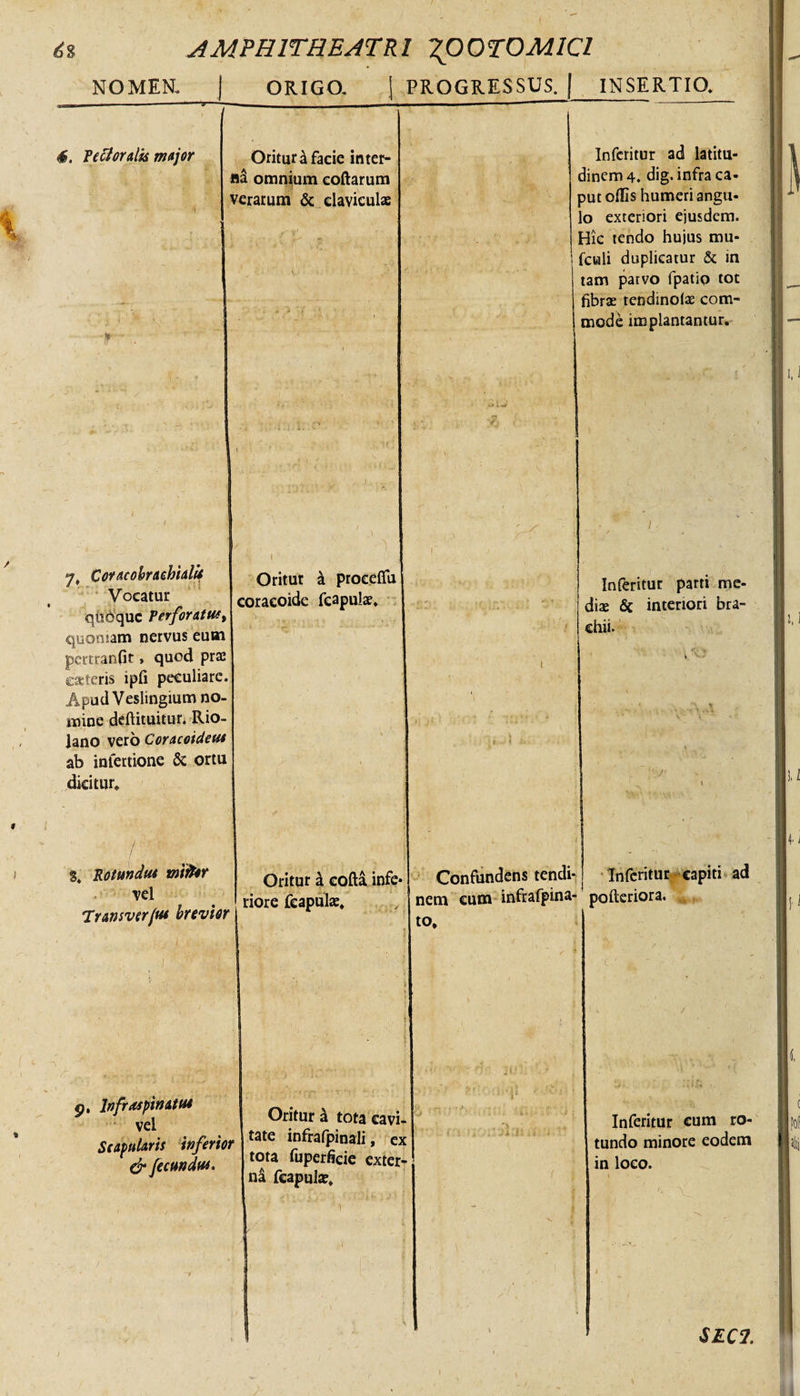 68 AMPHITHEATRI ZOOTOMICI
NOMEN. | ORIGO. | PROGRESSUS. | INSERTIO.
6. Pectoralis major
Oritur à facie inter-
nâ omnium coſtarum
verarum & claviculæ
Inſeritur ad latitu-
dinem 4. dig. infra ca-
put oſſis humeri angu-
lo exteriori ejusdem.
Hîc tendo hujus mu-
ſculi duplicatur & in
tam parvo ſpatio tot
fibræ tendinoſæ com-
modè implantantur.
7. Coracobrachialis
Vocatur
quòque Perforatus,
quoniam nervus eum
pertranſit, quod præ
cæteris ipſi peculiare.
Apud Veslingium no-
mine deſtituitur. Rio-
lano verò Coracoideus
ab inſertione & ortu
dicitur.
Oritur à proceſſu
coracoide ſcapulæ.
Inſeritur parti me-
diæ & interiori bra-
chii.
8. Rotundus minor
vel
Transverſus brevior
Oritur à coſtâ infe-
riore ſcapulæ.
Confundens tendi-
nem cum infraſpina-
to.
Inſeritur capiti ad
poſteriora.
9. Infraspinatus
vel
Scapularis inferior
& ſecundus.
Oritur à tota cavi-
tate infraſpinali, ex
tota ſuperficie exter-
nâ ſcapulæ.
Inſeritur cum ro-
tundo minore eodem
in loco.
SECT.